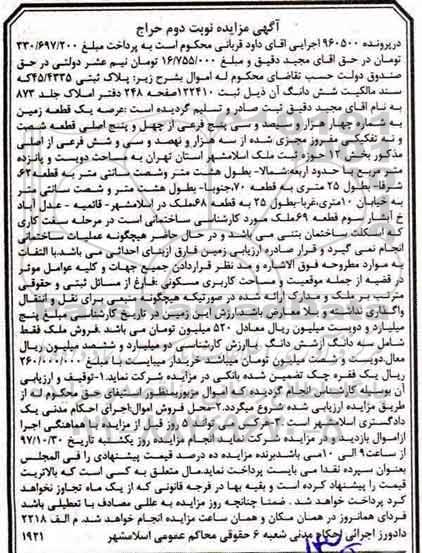 آگهی مزایده نوبت دوم حراج
درپرونده ۹۶۰۵۰۰ اجرایی اقای داود قربانی محکوم است به پرداخت مبلغ ۳۳۰/۶۹۷/۲۰۰
تومان در حق اقای مجید دقیق و مبلغ ۱۶/۷۵۵/۰۰۰ تومان نیم عشر دولتی در حق
صندوق دولت حسب تقاضای محکوم له اموال بشرح زیر: پلاک ثبتی ۴۵/۴۳۳۵که
سند مالکیت شش دانگ آن ذیل ثبت ۱۲۲۴۱۰صفحه ۲۴۸ دفتر املاک جلد ۸۷۳
به نام اقای مجید دقیق ثبت صادر و تسلیم گردیده است :عرصه یک قطعه زمین
به شماره چهار هزار و سیصد و سی پنج فرعی از چهل و پنج اصلی قطعه شصت
و نه تفکیکی مفروز مجزی شده از سه هزار و نهصد و سی و شش فرعی از اصلی
مذکور بخش ۱۲ حوزه ثبت ملک اسلامشهر استان تهران به مساحت دویست و پانزده
متر مربع با حدود اربعه:شمالا- بطول هشت متر وشصت سانتی متر به قطعه ۶۲،
شرقا- بطول ۲۵ متری به قطعه ۷۰،جنوبا- بطول هشت متر و شصت سانتی متر
به خیابان ۱۰متری،غربا-بطول ۲۵ به قطعه ۶۸ملک در اسلامشهر - قائمیه - عدل آباد
خ آبشار سوم قطعه ۶۹ملک مورد کارشناسی ساختمانی است در مرحله سفت کاری
که اسکلت ساختمان بتنی می باشد و در حال حاضر هیچگونه عملیات ساختمانی
انجام نمی گیرد و قرار صادره ارزیابی زمین فارق ازبنای احداثی می باشد.با التفات
به موارد مطروحه فوق الاشاره و مد نظر قراردادن جمیع جهات و کلیه عوامل موثر
در قضیه از جمله موقعیت و مساحت کاربری مسکونی ،فارغ از مسائل ثبتی و حقوقی
مترتب بر ملک و مدارک ارائه شده در صورتیکه هیچگونه منبعی برای نقل و انتقال
واگذاری نداشته و بلا معارض باشد:ارزش این زمین در تاریخ کارشناسی مبلغ پنج
میلیارد و دویست میلیون ریال معادل ۵۲۰ میلیون تومان می باشد .فروش ملک فقط
شامل سه دانگ ارزش دانگ باارزش کارشناسی دو میلیارد و ششصد میلیون ریال
معال.دویست و شصت میلیون تومان میباشد خریدار میبایست به مبلغ ۲۶۰/۰۰۰/۰۰۰
ریال یک فقره چک تضمین شده بانکی در مزایده شرکت نماید.۱-توقیف و ارزیابی
آن بوسیله کارشناس انجام گردیده که اموال مزبوربمنظور استیفای حق محکوم له از
طریق مزایده ارزیابی شده شروع میگردد.۲-محل فروش اموال:اجرای احکام مدنی یک
دادگستری اسلامشهر است ۳-هرکس می تواند۵ روز قبل از مزایده با هماهنگی اجرا
ازاموال بازدید و در مزایده شرکت نماید انجام مزایده روز یکشنبه تاریخ ۹۷/۱۰/۳۰
از ساعت۹ الی ۱۰می باشدبرنده مزایده ده درصد قیمت پیشنهادی را فی المجلس
بعنوان سپرده نقدا می بایست پرداخت نماید.مال متعلق به کسی است که بالاتریت
قیمت را پیشنهاد کرده است و بقیه بها در فرجه قانونی که از یک ماه تجاوز نخواهد
کرد پرداخت خواهد شد . ضمنا چنانچه روز مزایده به عللی مصادف با تعطیلی باشد
فردای همانروز در همان مکان و همان ساعت مزایده انجام خواهد شد. م الف ۲۲۱۸
دادورز اجرائی احکام مدنی شعبه ۶ حقوقی محاکم عمومی اسلامشهر ۱۹۲۱